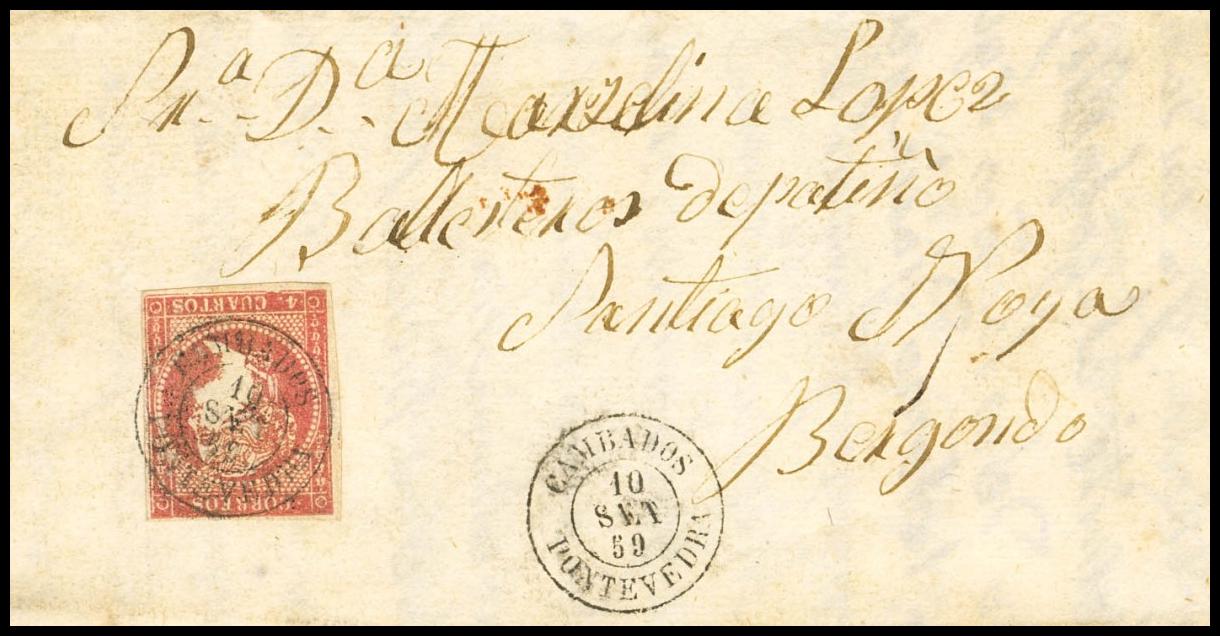 Sra. Da. Marzelina Lopez
Balleteros de patiño
Santiago Noya
Bergondo
4 CUARTOS
CORREOS
CAMBADOS
10
SET
59
PONTEVEDRA
CAMBADOS
10
SET
59
PONTEVEDRA